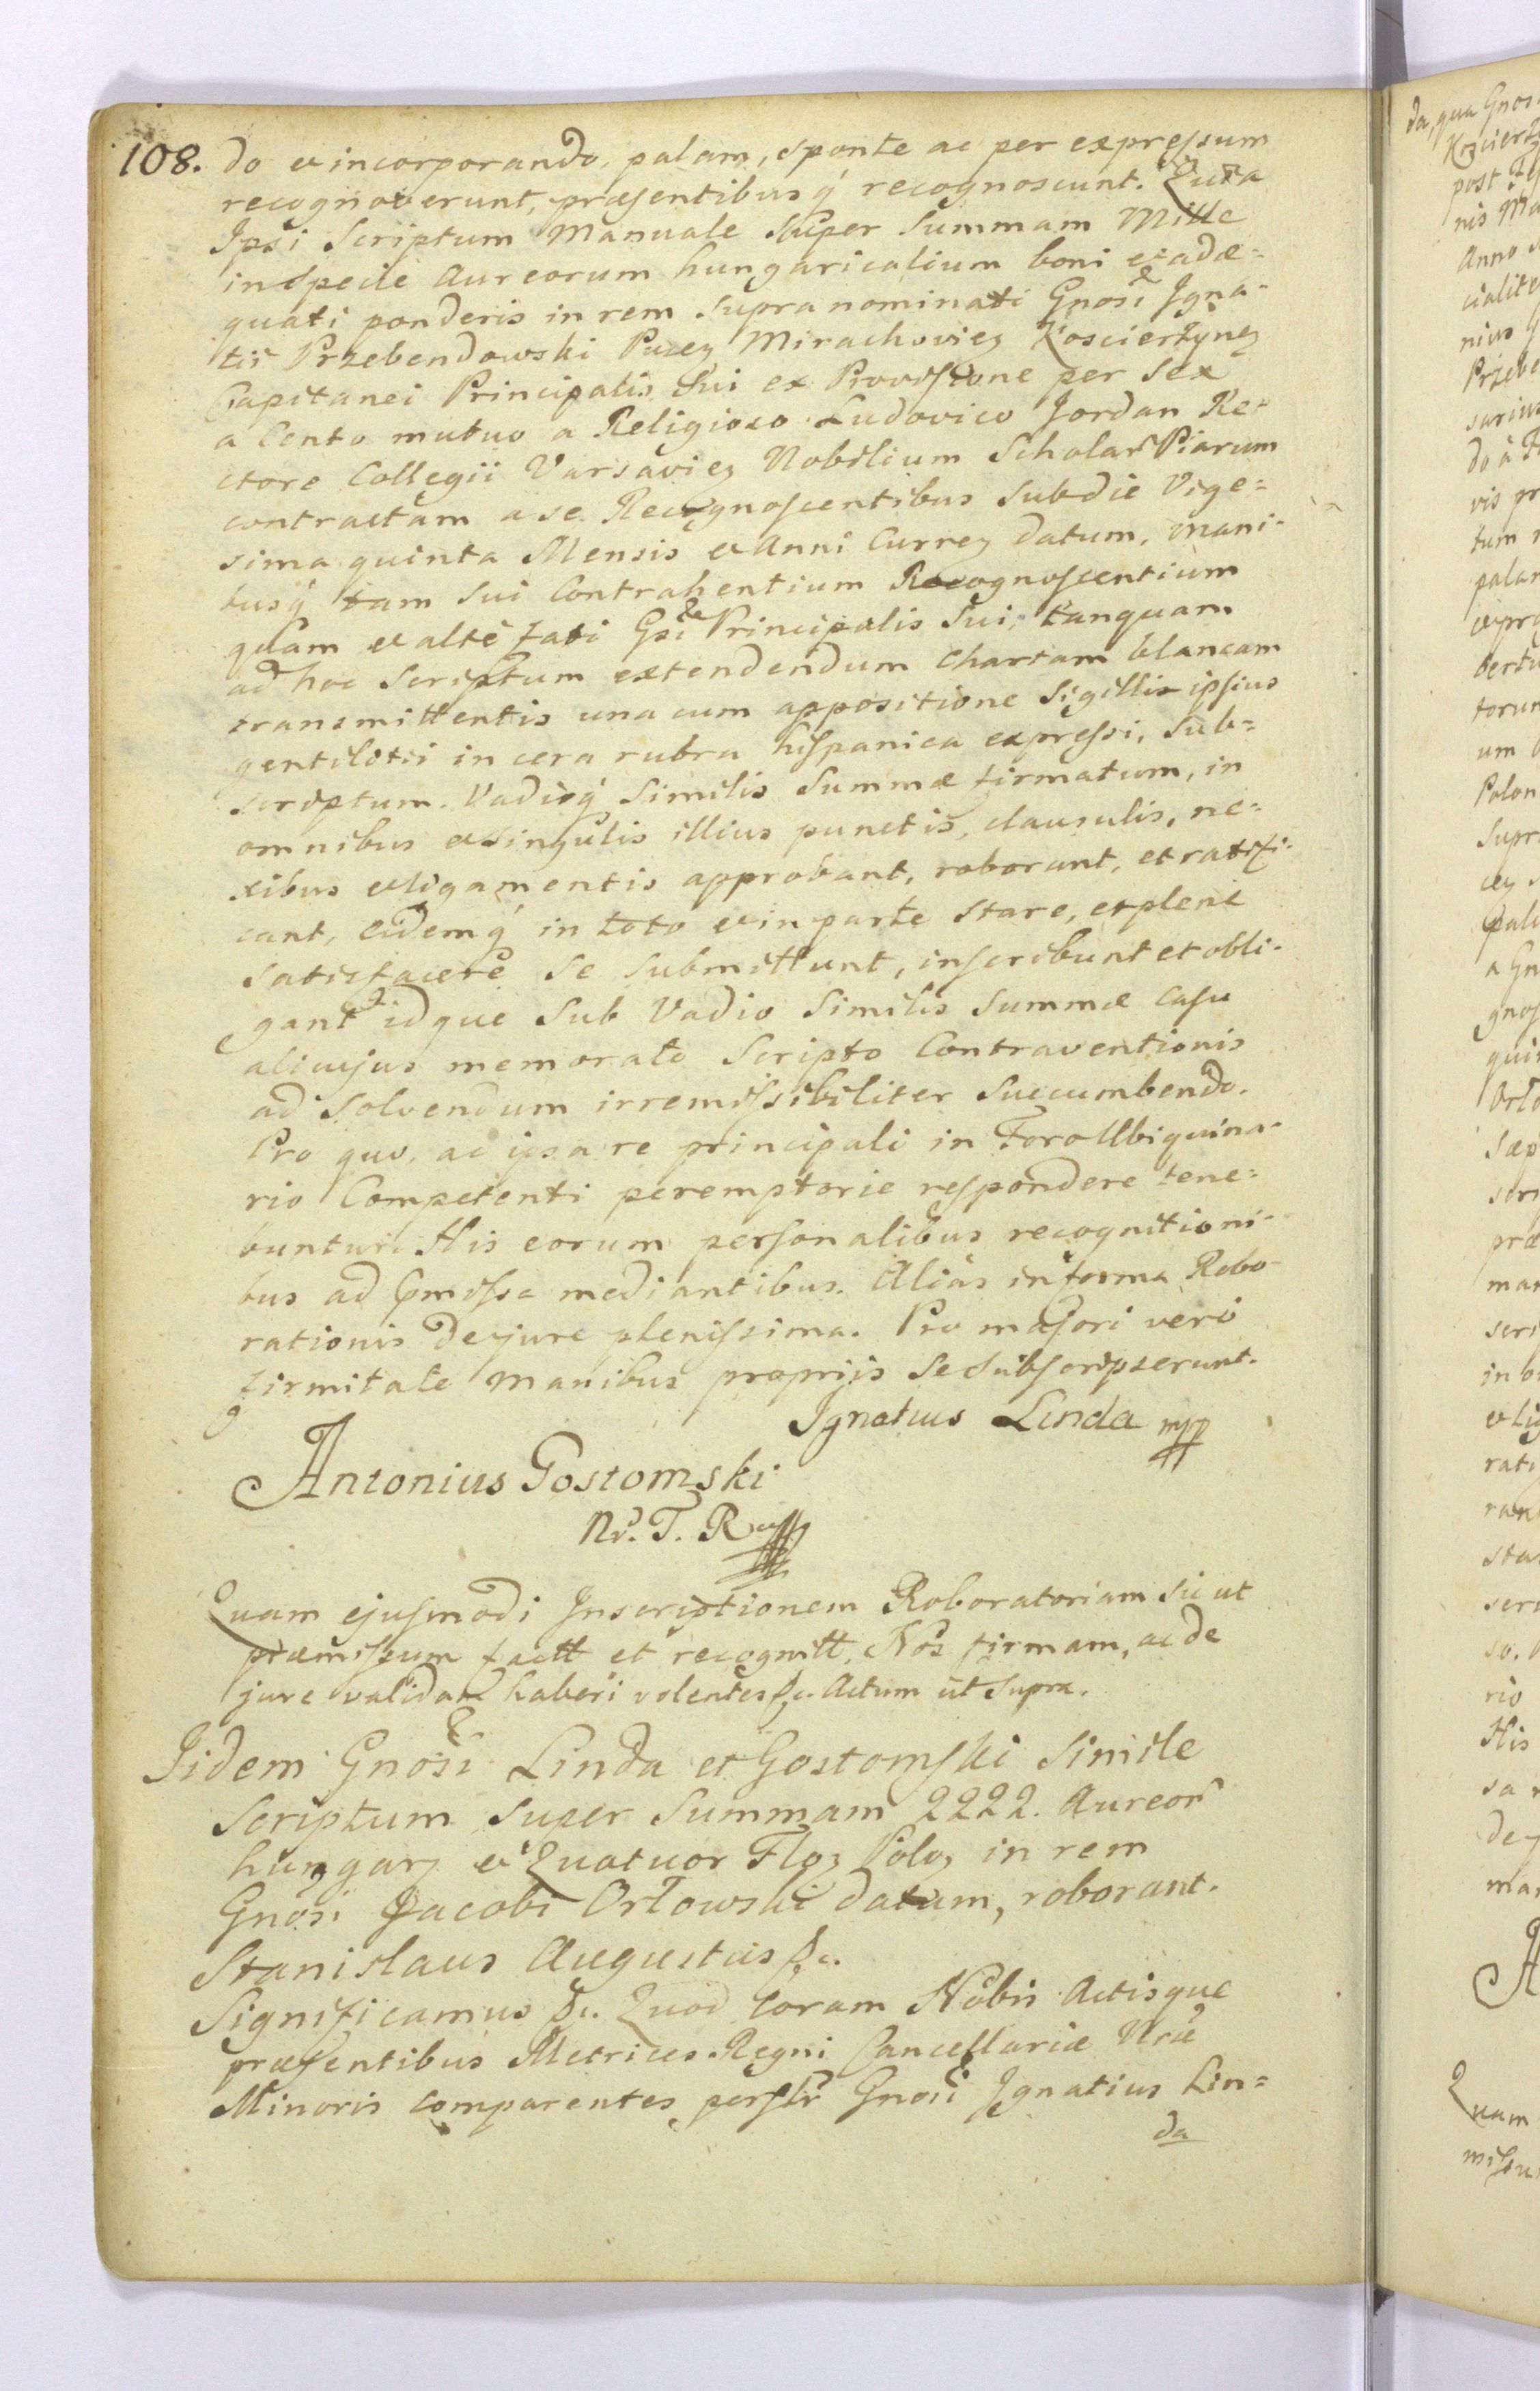 108. do et incorporando, palam, sponte ac per expressum
recognoverunt, præsentibusq́ recognoscunt. Quia
Ipsi Scriptum Manuale Super Summam Mille
in Specie Aureorum hungaricalium boni et adæ=
quati ponderis in rem Supra nominati Gnosi Igna-
tii Przebendowski Pucen Mirachovien Kosciertzynen
Capitanei Principalis Sui ex Provisione per Sex
a Cento mutuo a Religioso Ludovico Jordan Re-
ctore Collegii Varsavien Nobilium Scholar Piarum
contractam a se Recognoscentibus Sub die Vige=
sima quinta Mensis et Anni Curren datum, mani-
busq́ tam Sui Contrahentium Recognoscentium
quam et altè fati Gsi Principalis Sui, tanquam
ad hoc Scriptum extendendum Chartam blancam
transmittentis una cum appositione Sigilli ipsius
gentilitii in cera rubra hispanica expressi, Sub=
scriptum. Vadioq́ Similis Summæ firmatum, in
omnibus et Singulis illius punctis, clausulis, ne=
xibus et ligamentis approbant, roborant, et ratifi-
cant, Eidemq́ in toto et in parte Stare, et plene
Satisfacere Se Submittunt, inscribunt et obli-
gant idque Sub Vadio Similis Summæ casu
alicujus memorato Scripto Contraventionis
ad Solvendum irremissibiliter Succumbendo.
Pro quo, ac ipsa re principali in Foro Ubiquina-
rio Competenti peremptorie respondere tene=
buntur. His eorum personalibus recognitioni-
bus ad præmissa mediantibus. Alias in forma Robo-
rationis de jure plenissima. Pro majori vero
firmitate Manibus propriis Se Subscripserunt.
Ignatius Linda mpp
Antonius Gostomski
Nr. T. R
Quam ejusmodi Inscriptionem Roboratoriam Sic ut
præmissum factt et recognitt, Nos firmam, ac de
jure validam haberi volentes &c. Actum ut Supra.
Iidem Gnosi Linda et Gostomski Simile
Scriptum Super Summam 2222. Aureor
hungar et Quatuor Flor Polo, in rem
Gnosi Jacobi Orłowski datum, roborant.
Stanislaus Augustus &c.
Significamus &c. Quod Coram Nobis Actisque
præsentibus Metrices Regni Cancellariæ Nræ
Minoris comparentes persltr Gnosi Ignatius Lin=
da